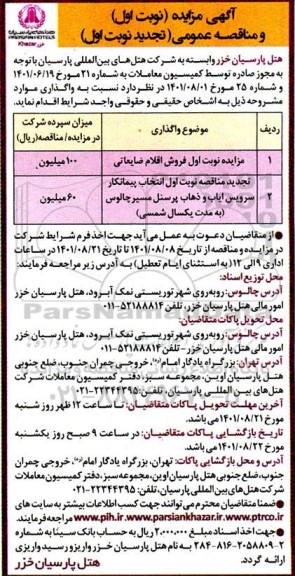 آگهی مزایده (نوبت اول)
و مناقصه عمومی (تجدید نوبت اول)
هتل پارسیان خزر
PARSIAN HOTELS
Khazar
هتل پارسیان خزر وابسته به شرکت هتل های بین المللی پارسیان با توجه
به مجوز صادره توسط کمیسیون معاملات به شماره ۲۱ مورخ ۱۴۰۱/۰۶/۱۹
و شماره ۲۵ مورخ ۱۴۰۱/۰۸/۰۱ در نظر دارد نسبت به واگذاری موارد
مشروحه ذیل به اشخاص حقیقی و حقوقی واجد شرایط اقدام نماید.
ردیف
موضوع واگذاری
میزان سپرده شرکت در مزایده / مناقصه (ریال)
۱
مزایده نوبت اول فروش اقلام ضایعاتی
۱۰۰ میلیون
۲
تجدید مناقصه نوبت اول انتخاب پیمانکار
سرویس ایاب و ذهاب پرسنل مسیر چالوس
(به مدت یکسال شمسی)
۶۰ میلیون
از متقاضیان دعوت به عمل می آید جهت اخذ فرم شرایط شرکت
در مزایده و مناقصه از تاریخ ۱۴۰۱/۰۸/۰۸ تا تاریخ ۱۴۰۱/۰۸/۲۱ در ساعات
اداری ۹ الی ۱۲ (به استثنای ایام تعطیل) به آدرس زیر مراجعه فرمایند:
محل توزیع اسناد:
آدرس چالوس: روبه روی شهر توریستی نمک آبرود، هتل پارسیان خزر
امور مالی هتل پارسیان خزر، تلفن ۵۲۱۸۸۸۱۴-۰۱۱
محل تحویل پاکات متقاضیان:
آدرس چالوس: روبه روی شهر توریستی نمک آبرود، هتل پارسیان خزر،
امور مالی هتل پارسیان خزر - تلفن ۵۲۱۸۸۸۱۴-۰۱۱
آدرس تهران: بزرگراه یادگار امام، خروجی چمران جنوب، ضلع جنوبی
هتل پارسیان اوین، مجموعه سبز، دفتر کمیسیون معاملات شرکت
هتل های بین المللی پارسیان، تلفن: ۲۲۳۴۴۳۹۵-۰۲۱
آخرین مهلت تحویل پاکات متقاضیان: تا ساعت ۱۲ ظهر روز شنبه
مورخ ۱۴۰۱/۰۸/۲۱ می باشد.
تاریخ بازگشایی پاکات متقاضیان: در ساعت ۹ صبح روز یکشنبه
مورخ ۱۴۰۱/۰۸/۲۲ می باشد.
آدرس و محل بازگشایی پاکات: تهران، بزرگراه یادگار امام، خروجی چمران
جنوب، ضلع جنوبی هتل پارسیان اوین، مجموعه سبز، دفتر کمیسیون معاملات
شرکت هتل های بین المللی پارسیان، تلفن: ۲۲۳۴۴۳۹۵-۰۲۱
ضمنا متقاضیان محترم می توانند جهت کسب اطلاعات بیشتر به سایت های
www.ptrco.ir www.parsiankhazar.ir www.pih.ir مراجعه فرمایند.
جهت اخذ اسناد مبلغ ۲.۰۰۰.۰۰۰ ریال به حساب بانک سینا به شماره
۲۸۴-۸۱۶-۲۰۵۸۸۰۹-۲ به نام هتل پارسیان خزر واریز و رسید واریزی
ارائه گردد.
هتل پارسیان خزر